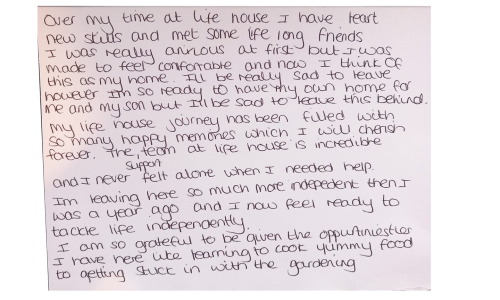 Over my time at life house I have leart
new skills and met some life long friends
I was really anxious at first but I was
made to feel comfortable and now I think of
this as my home. I'll be really sad to leave
however I'm so ready to have my own home for
me and my son but I'll be sad to leave this behind.
My life house journey has been filled with
so many happy memories which I will cherish
forever. The support team at life house is incredible
and I never felt alone when I needed help.
Im leaving here so much more indepedent then I
was a year ago and I now feel ready to
tackle life independently.
I am so grateful to be given the oppurtinesties
I have here like learning to cook yummy food
to getting stuck in with the gardening